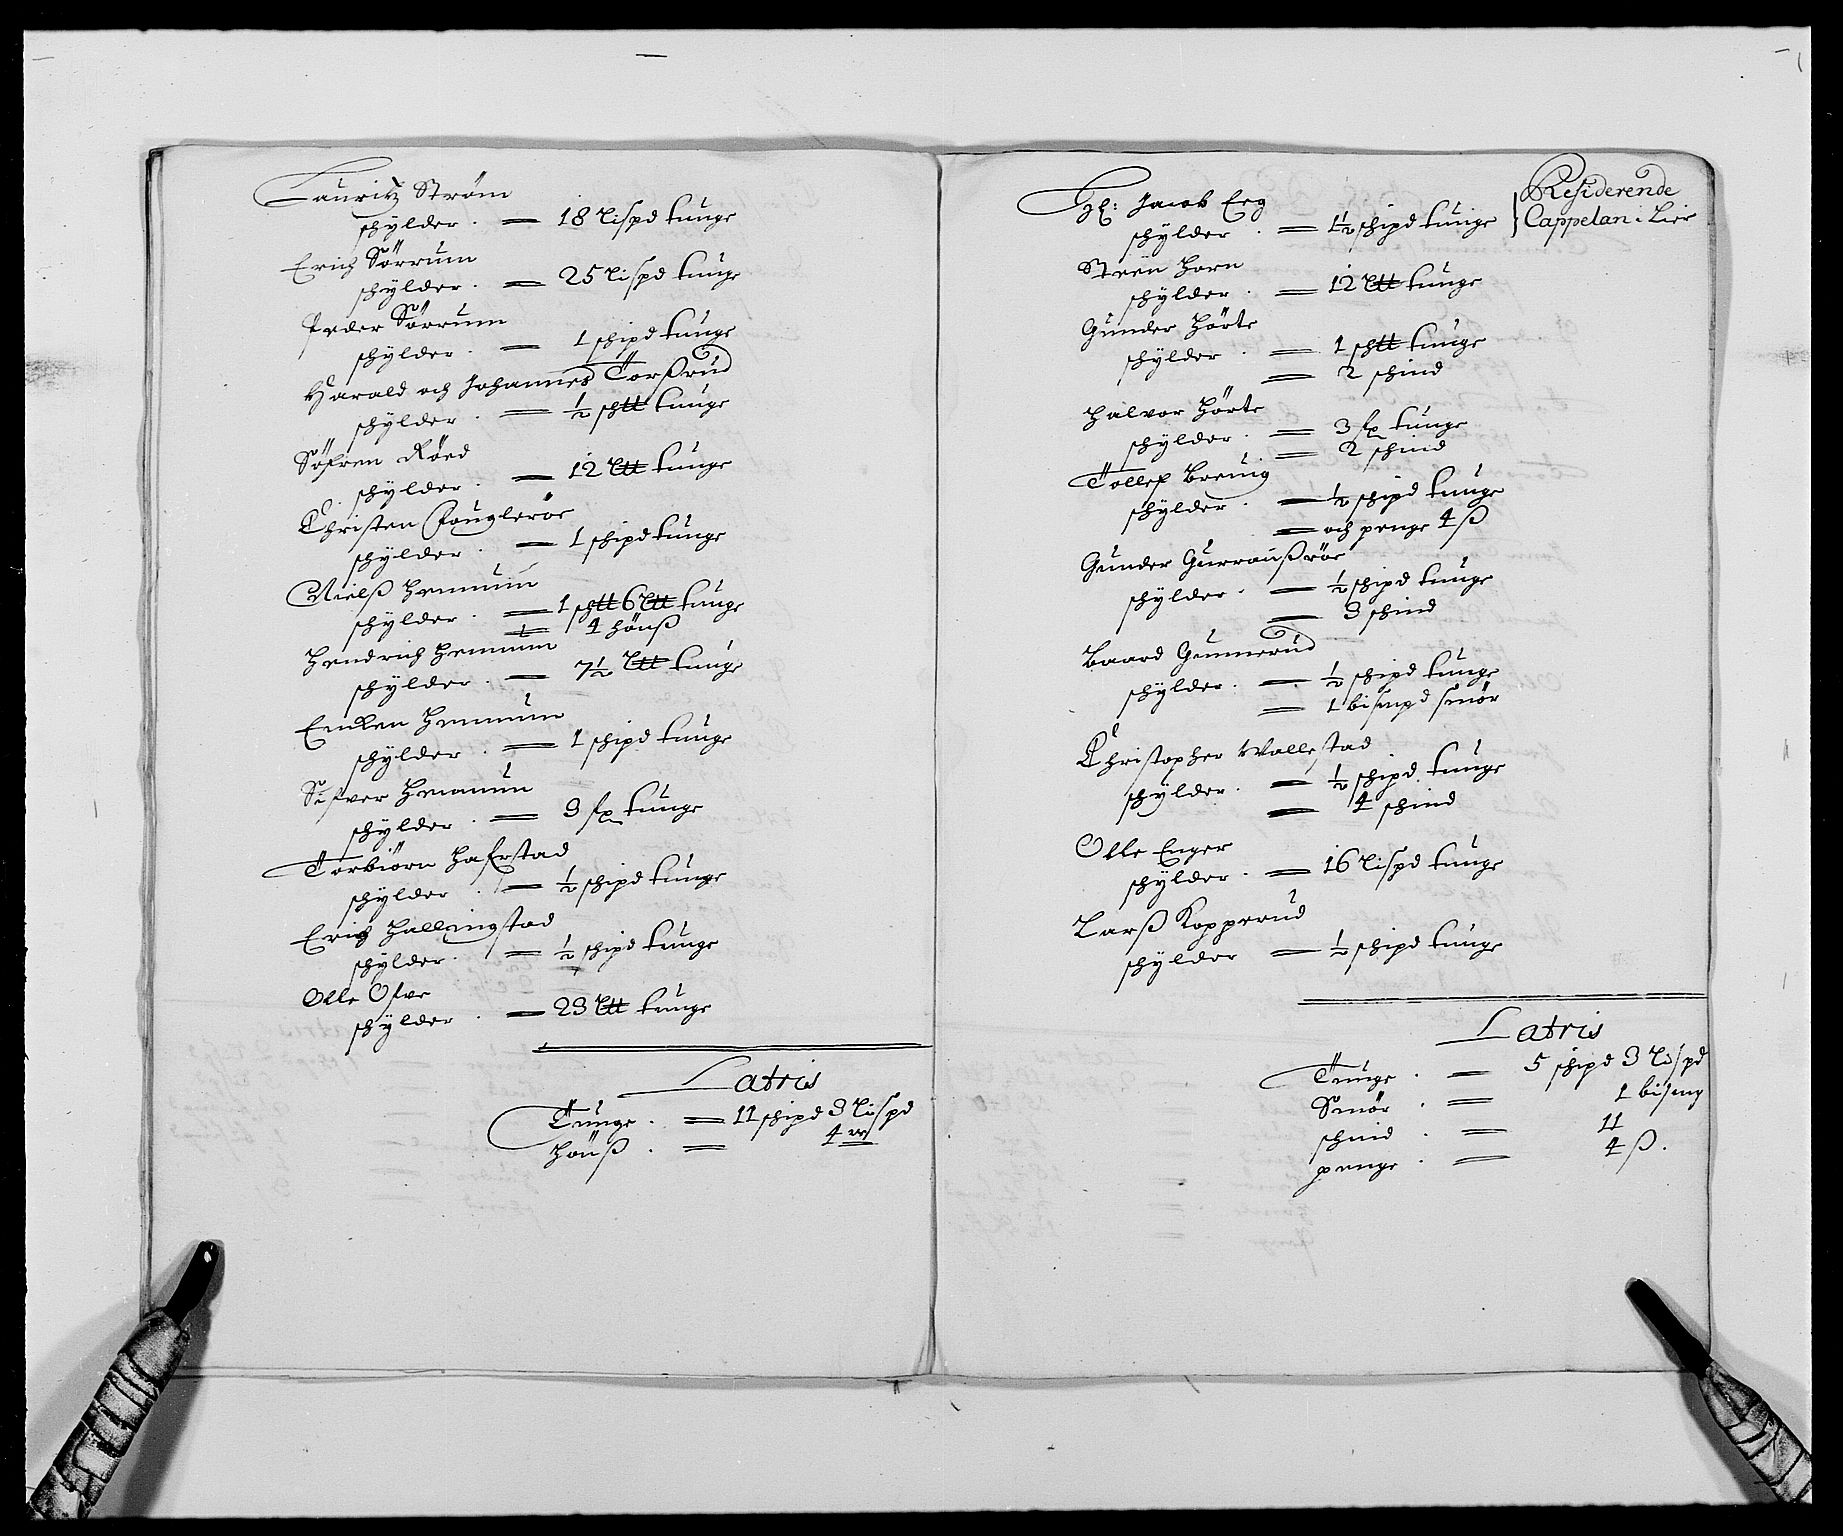 Lauritz Ström
schÿlder. = 18 Lispd tunge
Erich Sörrum
schÿlder. = 25 Lispd tunge
Peder Sörrum
schÿlder. = 1 schipd tunge
Harald och Johannes Torßrud
schÿlder. = ½ schtt tunge
Söfren Röed
schÿlder. = 12 Ltt tunge
Christen
schÿlder. = 1 schipd tunge
Nielß Hennum
schÿlder. = 1 schtt 6 Ltt tunge
= 4 Hönß
Hendrich Hennum
schÿlder. = 7½ Ltt tunge
Hennum
schÿlder. = 1 schipd tunge
Sifver Hennum
schÿlder. = 3 fx tunge
Torbiörn Hafrstad
schÿlder. = ½ schipd tunge
Erich Hallingstad
schÿlder. = ½ schipd tunge
Olle Ofre
schÿlder. = 23 Ltt tunge
Latris
Tunge. = 11 schipd 3 Lispd
Hönß. = 4
Hr: Jacob Eeg
Residerende
schÿlder. = 1½ schipd tunge
Cappelan i Lier
Steen Horn
schÿlder. = 12 Ltt tunge
Gunder Hörte
schÿlder. = 1 schtt tunge
= 2 schind
Halvor Hörte
schÿlder. = 3 fx tunge
= 2 schind
Tollef Breuig
schÿlder. = ½ schipd tunge
= och penge 4 ß
Gunder Gurranßröe
schÿlder. = ½ schipd tunge
= 3 schind
Baard Gunnerud
schÿlder. = ½ schipd tunge
= 1 bismpd smör
Christopher Vallestad
schÿlder. = ½ schipd. tunge
= 4 schind
Olle Enger
schÿlder. = 16 Lispd tunge
Larß Kopperud
schÿlder = ½ schipd tunge
Latris
Tunge. = 5 schipd 3 Lispd
Smör. = 1 bismp
schind. = 11
penge. = 4 ß.